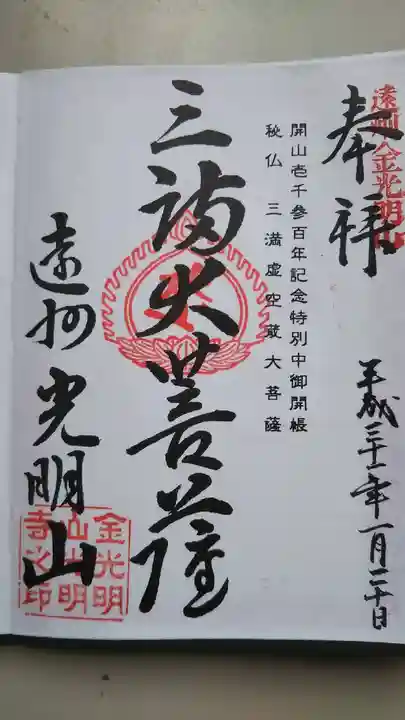 奉拝
遠州金光明山
平成三十一年一月二十日
開山壱千参百年記念特別中御開帳
秘仏 三満虚空蔵大菩薩
三満大菩薩
遠州光明山
金光明
山光明
寺之印